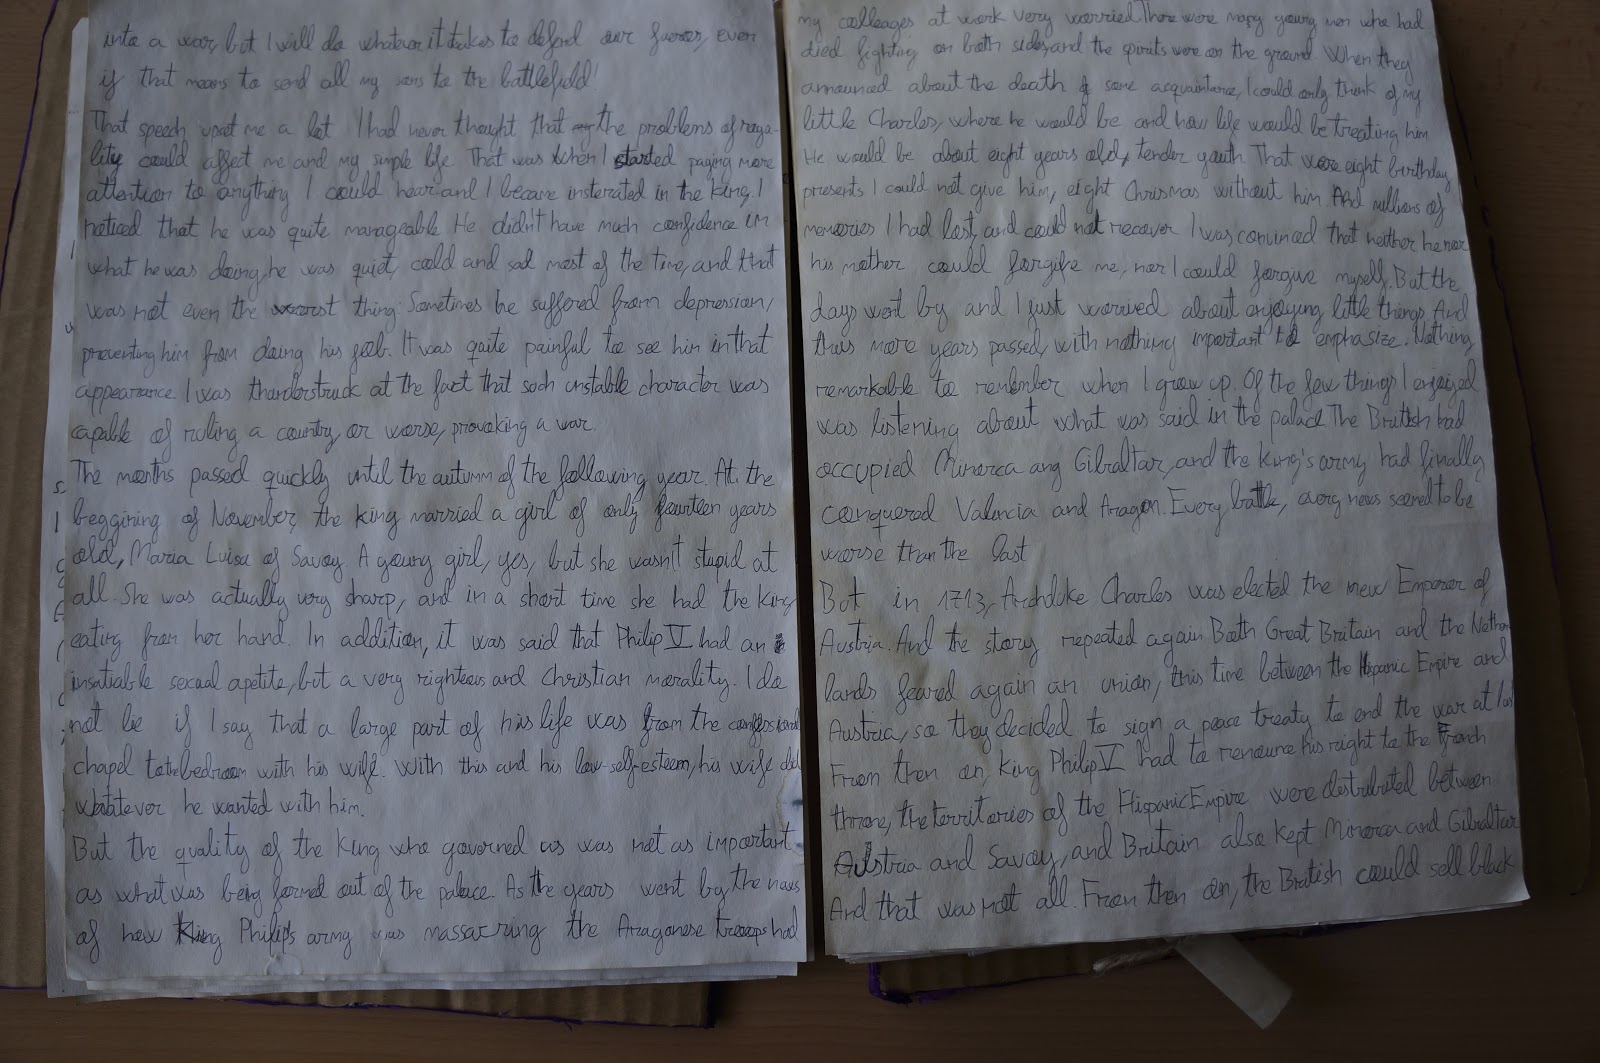 into a war, but I will do whatever it takes to defend our fueros, even
if that means to send all my sons to the battlefield!
That speech upset me a lot. I had never thought that the problems of roya-
lity could affect me and my simple life. That was when I started paying more
attention to anything I could hear and I became insterated in the king. I
noticed that he was quite manageable. He didn't have much confidence in
what he was doing, he was quiet, cold and sad most of the time, and that
was not even the worst thing: Sometimes he suffored from depression,
preventing him from doing his job. It was quite painful to see him in that
appearance. I was thunderstruck at the fact that such unstable character was
capable of ruling a country, or worse, provoking a war.
The months passed quickly until the autumn of the following year. At the
beggining of November, the king married a girl of only fourteen years
old, Maria Luisa of Savoy. A young girl, yes, but she wasn't stupid at
all. She was actually very sharp, and in a short time she had the king
eating from her hand. In addition, it was said that Philip V had an
insatiable sexual apetite, but a very righteous and Christian morality. I do
not lie if I say that a large part of his life was from the confessional
chapel to the bedroom with his wife. With this and his low-self-esteem, his wife did
whatever he wanted with him.
But the quality of the king who governed us was not as important
as what was being formed out of the palace. As the years went by the news
of how King Philip's army was massacring the Aragonese troops had
my colleages at work very worried. There were many young men who had
died fighting on both sides, and the spirits were on the ground. When they
announced about the death of some acquaintance, I could only think of my
little Charles, where he would be and how life would be treating him.
He would be about eight years old, tender youth. That were eight birthday
presents I could not give him, eight Chrismas without him. And millions of
memories I had lost, and could not recover. I was convinced that neither he nor
his mother could forgive me, nor I could forgive myself. But the
days went by and I just worried about enjoying little things. And
thus more years passed, with nothing important to emphasize. Nothing
remarkable to remember when I grow up. Of the few things I enjoyed
was listening about what was said in the palace. The British had
occupied Minorca ang Gibraltar, and the king's army had finally
conquered Valencia and Aragon. Every battle, every news seemed to be
worse than the last
But in 1713, Archduke Charles was elected the new Emperor of
Austria. And the story repeated again. Booth Great Britain and the Nether
lands feared again an union, this time between the Hispanic Empire and
Austria, so they decided to sign a peace treaty to end the war at last
From then on, king Philip V had to renounce his right to the French
throne, the territories of the Hispanic Empire were distributed between
Austria and Savoy, and Britain also kept Minorca and Gibraltar
And that was not all. From then on, the British could sell black